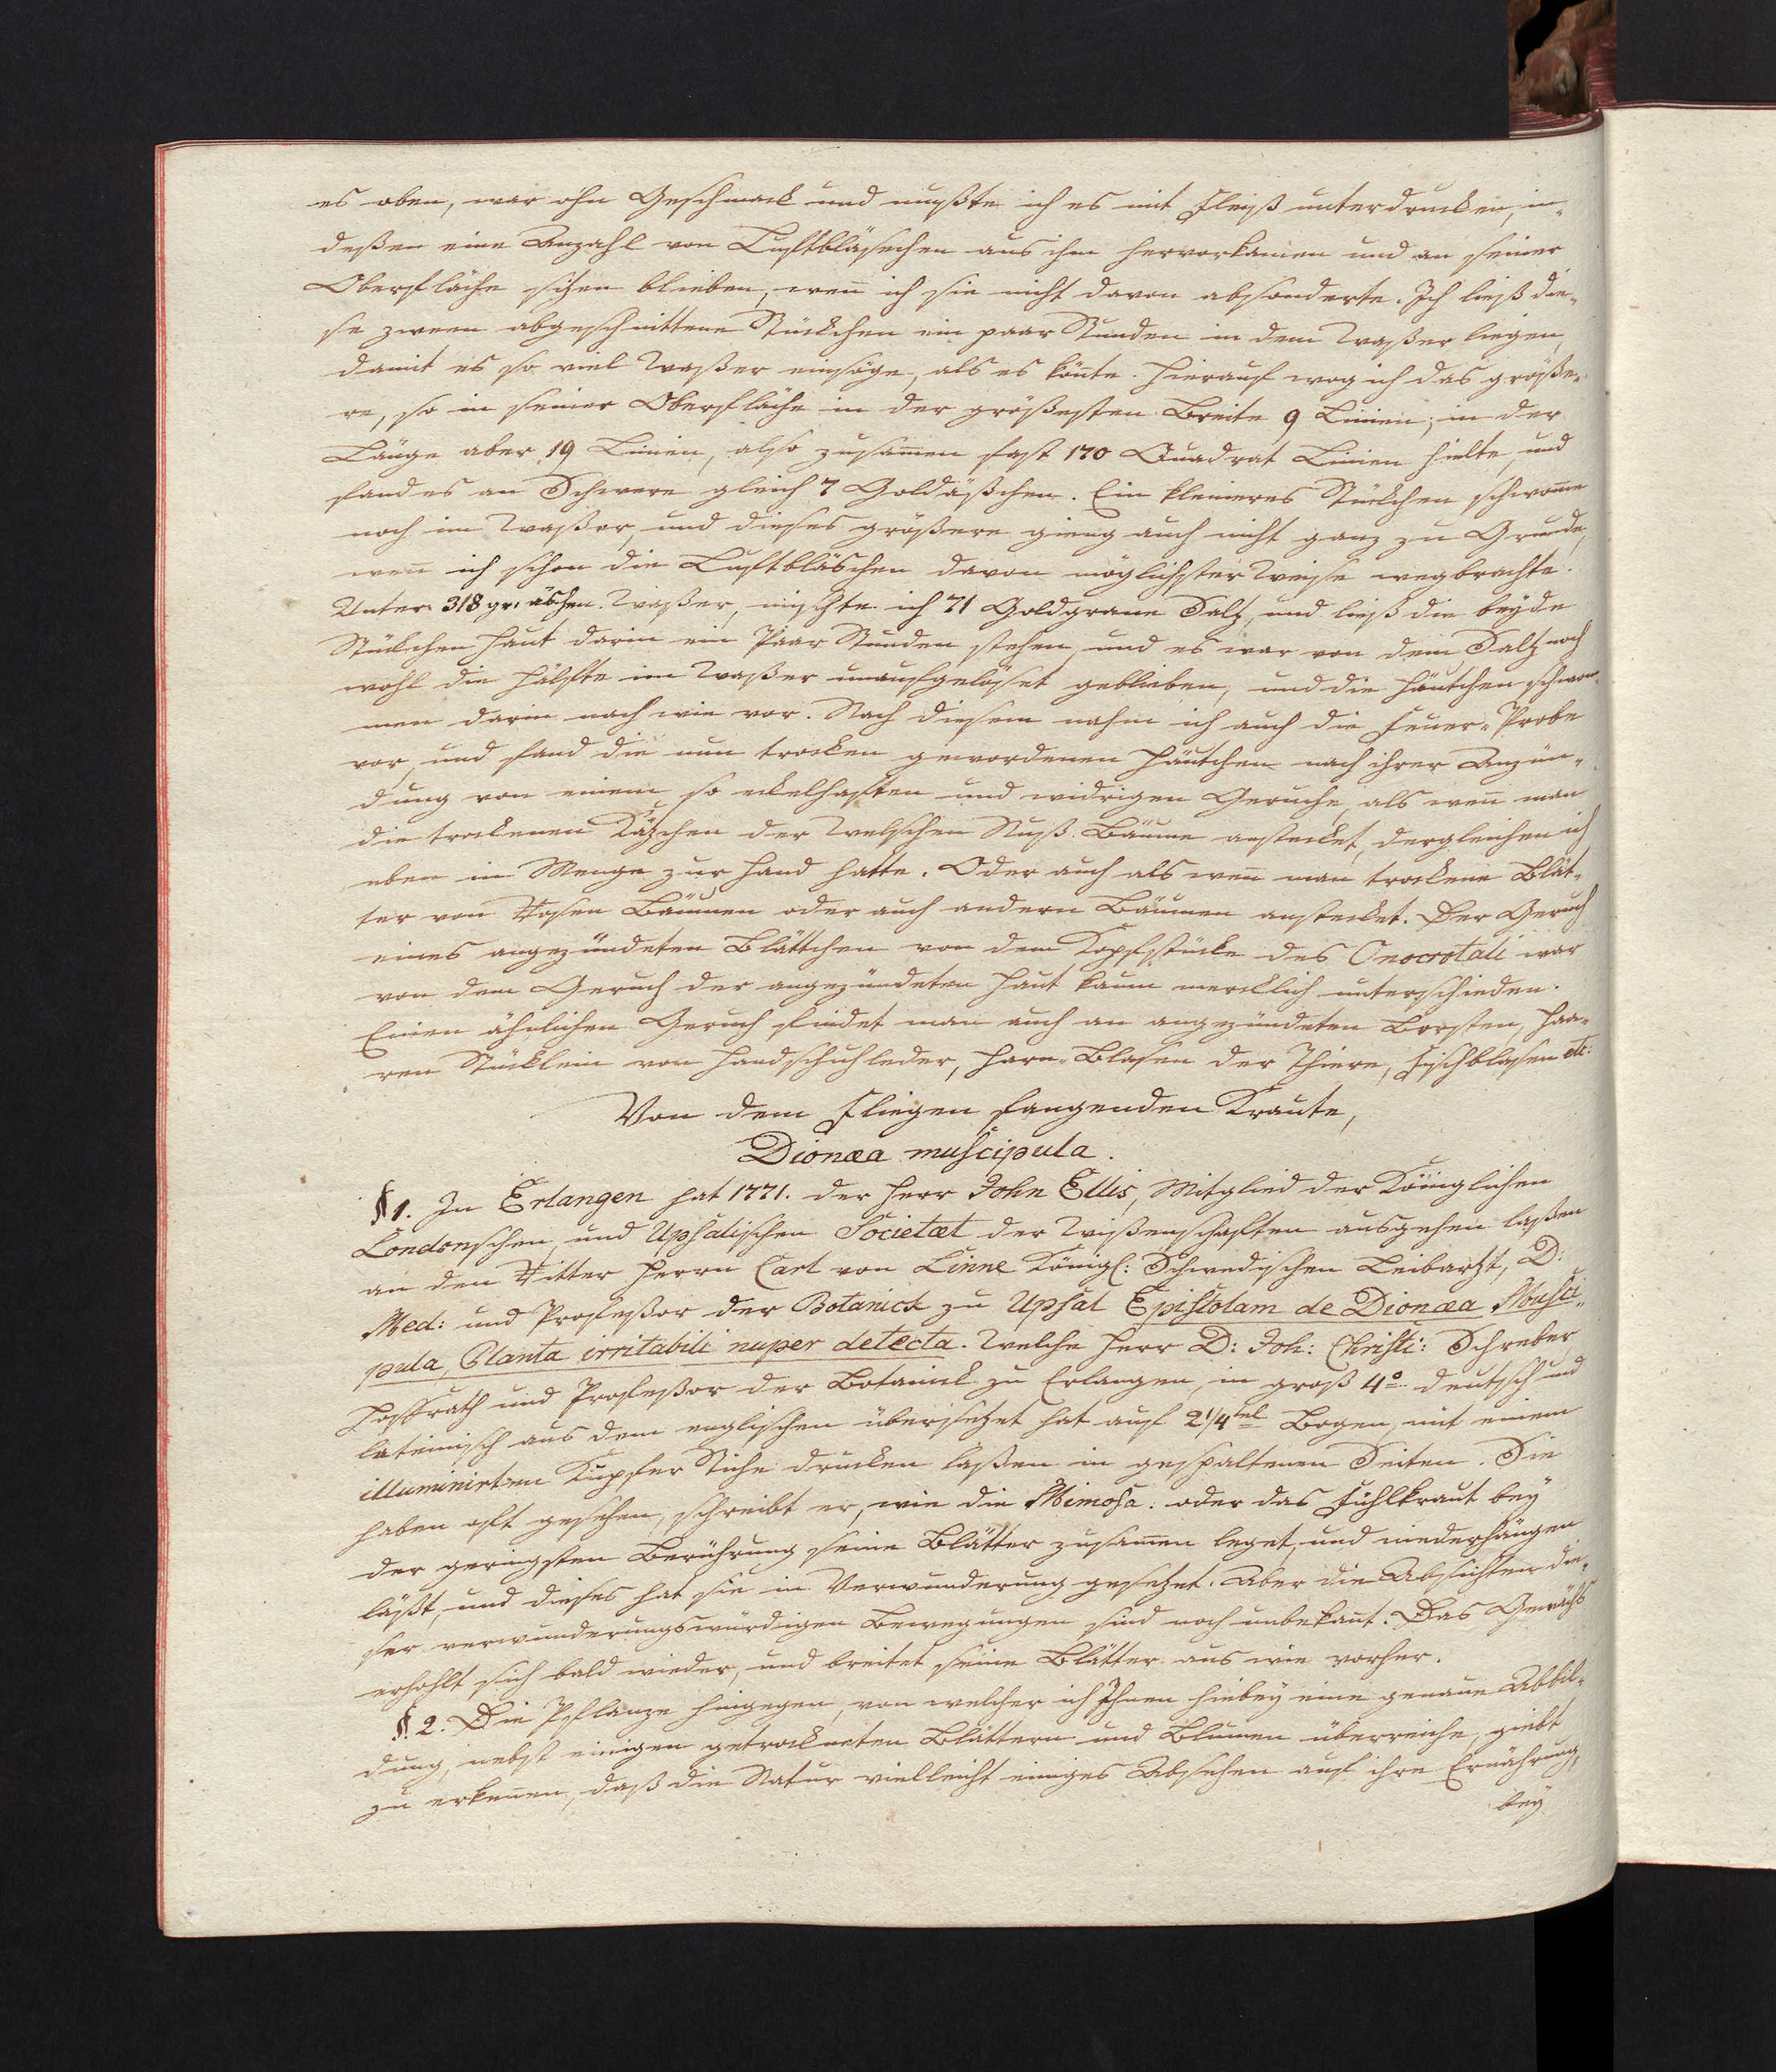 es oben, war ohn Geschmack und mußte ich es mit Fleiß unterdrucken, in-
deßen eine Anzahl von Luftbläsechen aus ihm hervorkamen und an seiner
Oberfläche sitzen blieben, weñ ich sie nicht davon absonderte. Ich ließ die-
se zween abgeschnittene Stückchen ein paar Stunden in dem Waßer liegen,
damit es so viel Waßer einsöge, als es köñte. Hierauf wog ich das größe-
re, so in seiner Oberfläche in der größesten Breite 9 Linien, in der
Länge aber 19 Linien, also zusam̃en fast 170 Quadrat Linien hielte, und
fand es an Schwere gleich 7 Goldäßchen. Ein kleineres Stückchen schwom̃e
noch im Waßer, und dieses größere gieng auch nicht ganz zu Grunde,
weñ ich schon die Luftbläschen davon möglichster Weise wegbrachte.
Unter 318 gr. äschen Waßer, mischte ich 71 Goldgrane Saltz, und ließ die beyde
Stückchen Haut darin ein Paar Stunden stehen, und es war von dem Saltz noch
wohl die Hälfte im Waßer unaufgelöset geblieben, und die Häutchen schwom-
men darin nach wie vor. Nach diesem nahm ich auch die Feuer-Probe
vor, und fand die nun trocken gewordenen Häutchen nach ihrer Anzün-
dung von einem so eckelhaften und widrigen Geruche, als weñ man
die trockenen Kätzchen der Welschen Nuß Bäume anstecket, dergleichen ich
eben in Menge zur Hand hatte. Oder auch als weñ man trockene Blät-
ter von Rosen Bäumen oder auch andern Bäumen anstecket. Der Geruch
eines angezündeten Blättchen von dem Kopfstücke des Onocrotali war
von dem Geruch der angezündeten Haut kaum mercklich unterschieden.
Einen ähnlichen Geruch findet man auch an angezündeten Borsten, Haa-
ren Stücklein von Handschuhleder, Harn-Blasen der Thiere, Fischblasen etc:
Von dem Fliegen fangenden Kraute,
Dionæa muscipula.
§ 1. In Erlangen hat 1771. der Herr John Ellis, Mitglied der Königlichen
Londonschen, und Upsalischen Societæt der Wißenschaften ausgehen laßen
an den Ritter Herrn Carl von Linne Königl: Schwedischen Leibartzt, D:
Med: und Profeßor der Botanick zu Upsal Epistolam de Dionæa Musci-
pula, Planta irritabili nuper detecta. Welche Herr D: Joh: Christi: Schreber
Hoffrath und Profeßor der Botanick zu Erlangen, in groß 4º deutsch und
lateinisch aus dem englischen übersetzet hat auf 2 1/4tel Bogen, mit einem
illuminirten Kupfer Stiche drucken laßen in gespaltenen Seiten. Sie
haben oft gesehen, schreibt er, wie die Mimosa. oder das Fühlkraut bey
der geringsten Berührung seine Blätter zusam̃en leget, und niederhängen
läßt, und dieses hat sie in Verwunderung gesetzet. Aber die Absichten die-
ser verwunderungswürdigen Bewegungen sind noch unbekañt. Das Gewächs
erhohlt sich bald wieder, und breitet seine Blätter aus wie vorher.
§. 2. Die Pflanze hingegen, von welcher ich Ihnen hiebey eine genaue Abbil-
dung, nebst einigen getrockneten Blättern und Blumen überreiche, giebt
zu erkeñen, daß die Natur vielleicht einiges Absehen auf ihre Ernährung,
bey